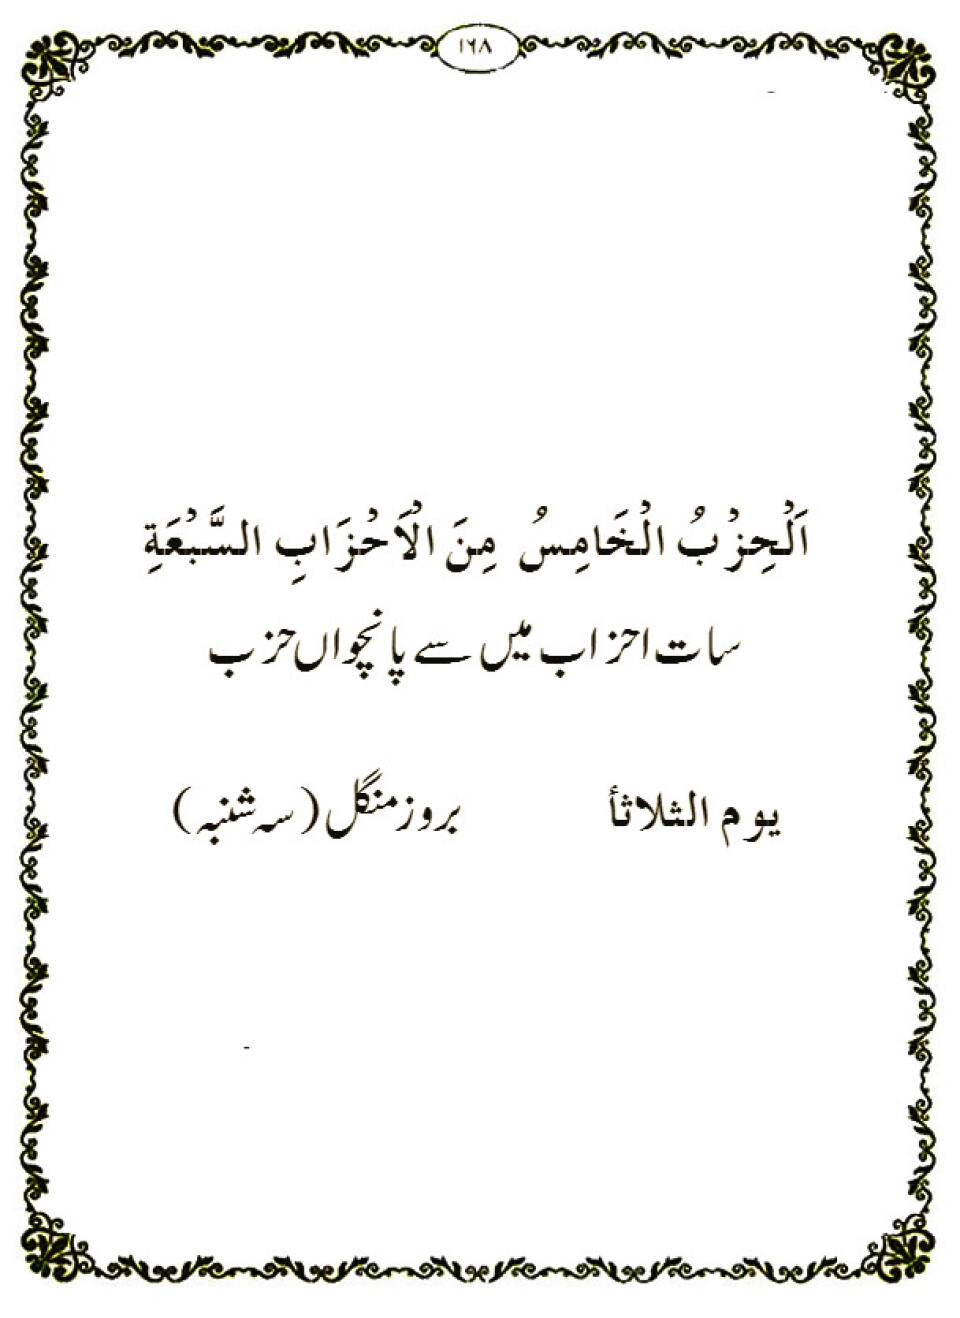 ۱۶۸
اَلْحِزْبُ الْخَامِسُ مِنَ الْاَحْزَابِ السَّبْعَةِ
سات احزاب میں سے پانچواں حزب
يوم الثلاثأ بروز منگل (سہ شنبہ)